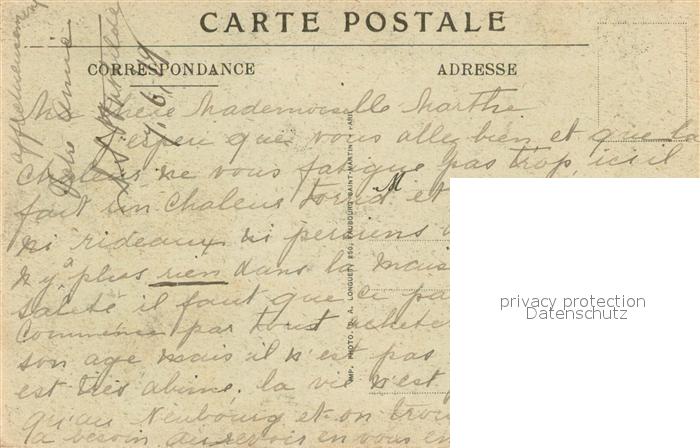 CARTE POSTALE
CORRESPONDANCE
ADRESSE
Ma chère Mademoiselle Marthe
J'espère que vous allez bien et que la
chaleur ne vous fatigue pas trop, ici il
fait un chaleur torrid et
M
ni rideaux ni persiens
n'y a plus rien dans la mais
saleté il faut que ce pa
commence par tout acheter
son age mais il n'est pas
est très abimé. la vie n'est
qu'au Neubourg et on trou
la besoin au revoir en vous en
IMP. PHOTO. A. LONGUET, 250, FAUBOURG SAINT-MARTIN
privacy protection
Datenschutz